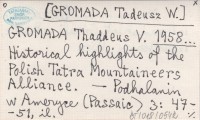 [GROMADA Tadeusz W.]
GROMADA Thaddeus V. 1958...
Historical highlights of the
Polish Tatra Mountaineers
Alliance. — Podhalanin
w Ameryce (Passaic) 3: 47-
-51, il.